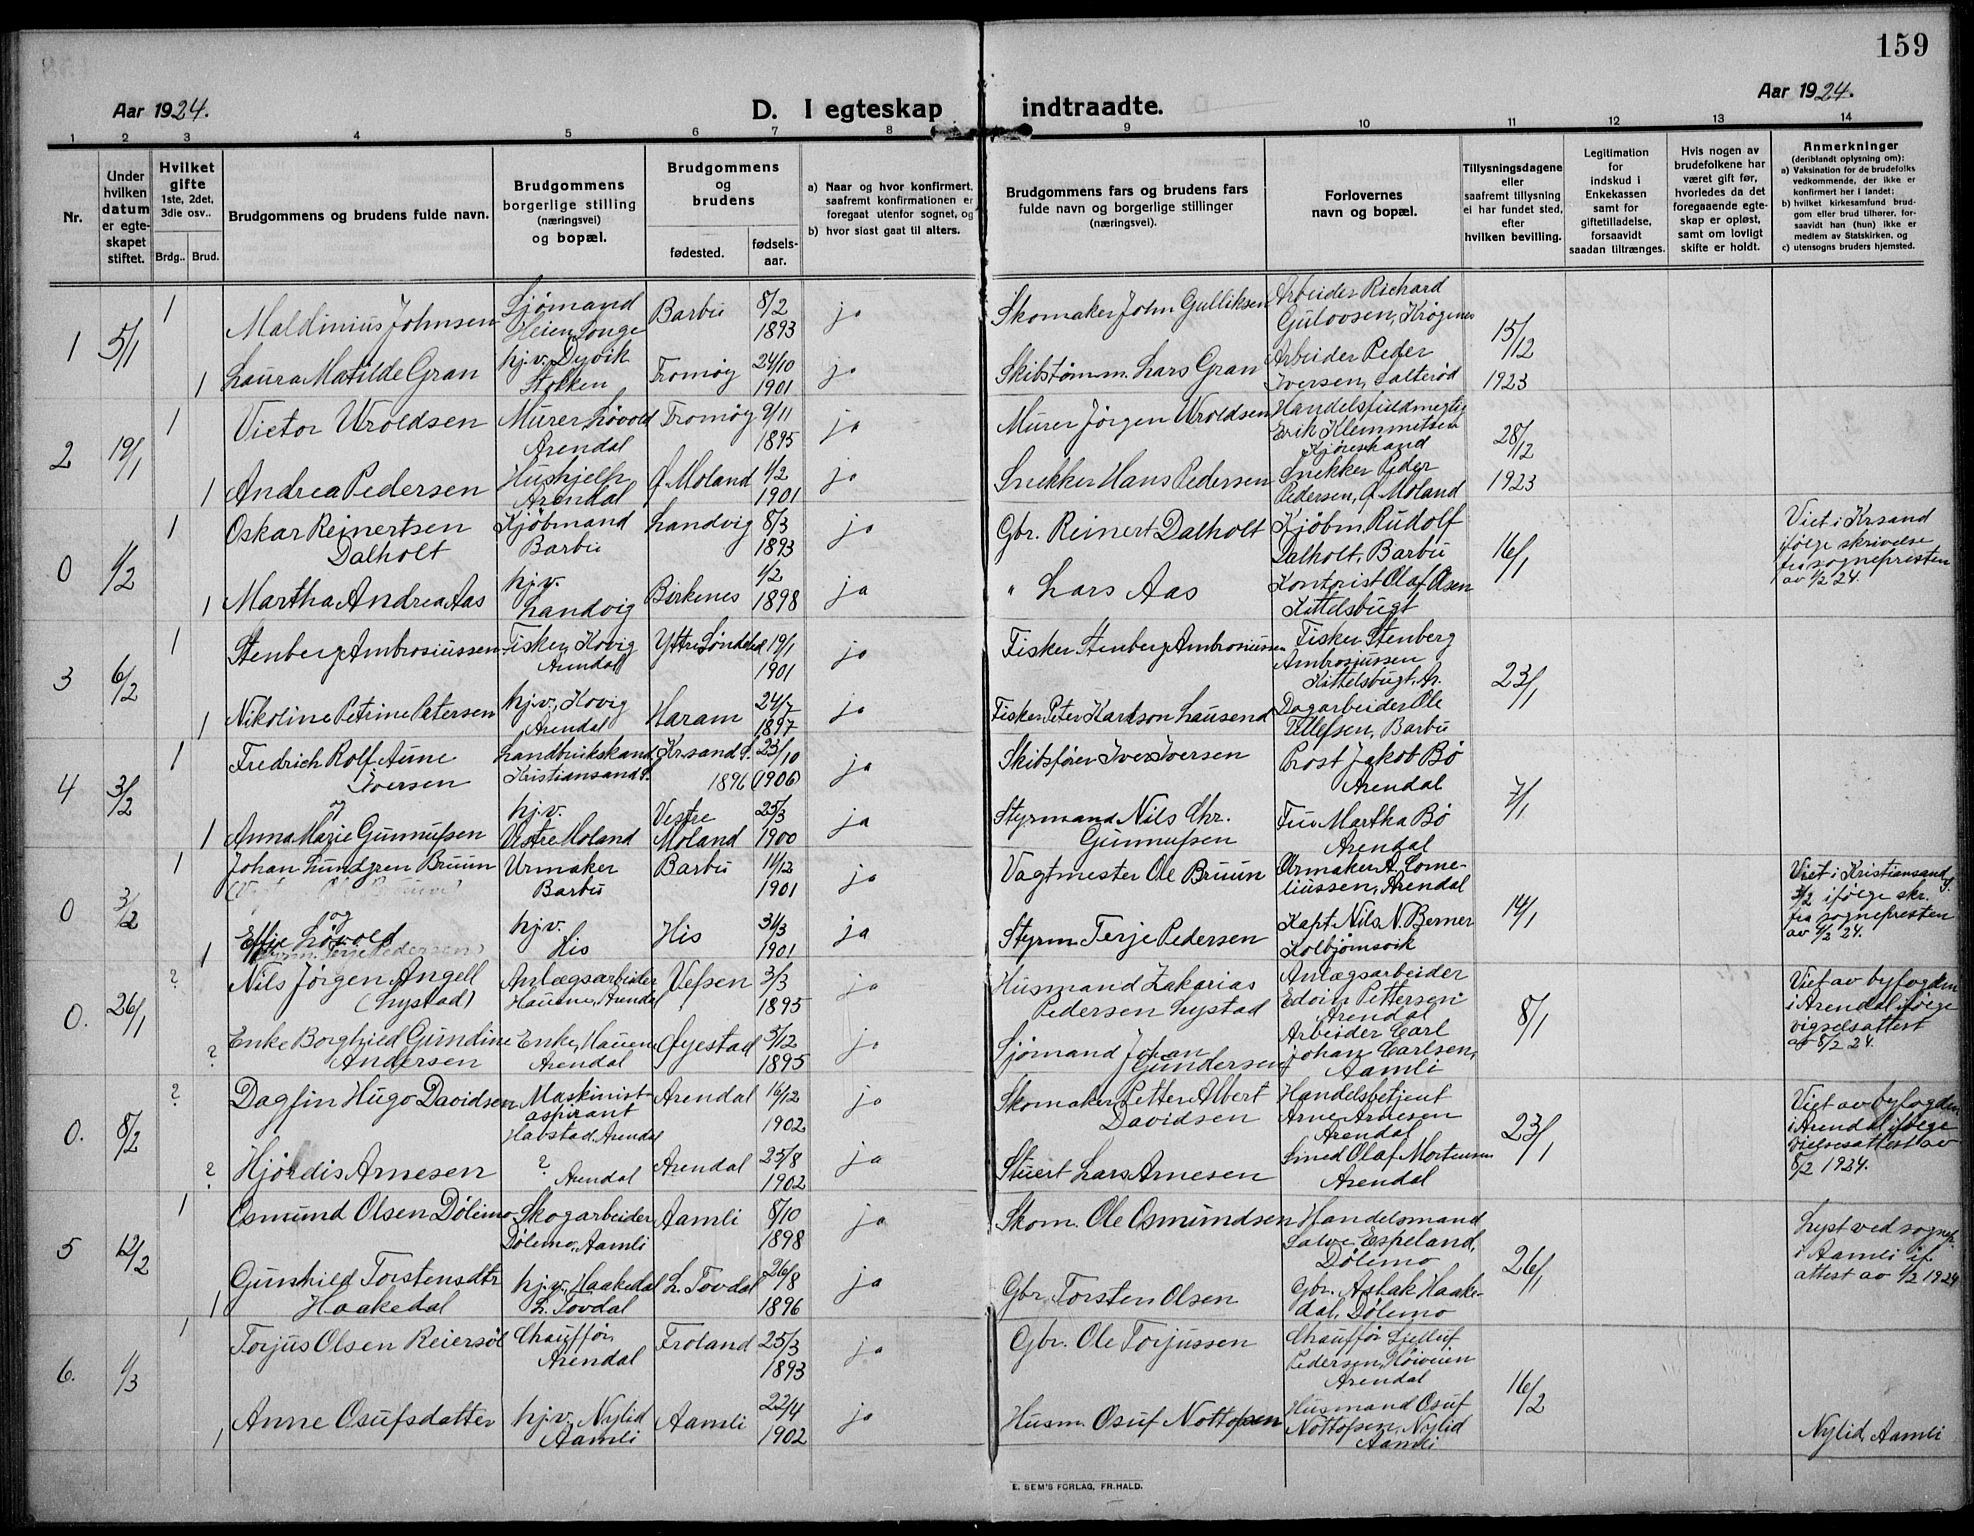 159
Aar 1924.
D. I egteskap indtraadte.
Aar 1924.
1 2 3 4 5 6 7 8 9 10 11 12 13 14
Nr.
Under hvilken datum er egteskapet stiftet.
Hvilket gifte 1ste, 2det, 3die osv..
Brdg.. Brud.
Brudgommens og brudens fulde navn.
Brudgommens borgerlige stilling (næringsvei) og bopæl.
Brudgommens og brudens
fødested.
fødsels-aar.
a) Naar og hvor konfirmert, saafremt konfirmationen er foregaat utenfor sognet, og
b) hvor sidst gaat til alters.
Brudgommens fars og brudens fars fulde navn og borgerlige stillinger (næringsvei).
Forlovernes navn og bopæl.
Tillysningsdagene eller saafremt tillysning ei har fundet sted, efter hvilken bevilling.
Legitimation for indskud i Enkekassen samt for giftetilladelse, forsaavidt saadan tiltrænges.
Hvis nogen av brudefolkene har været gift før, hvorledes da det foregaaende egteskap er opløst, samt om lovligt skifte er holdt.
Anmerkninger
(deriblandt oplysning om):
a) Vaksination for de brudefolks vedkommende, der ikke er konfirmert her i landet;
b) hvilket kirkesamfund brudgom eller brud tilhører, forsaavidt han (hun) ikke er medlem av Statskirken, og
c) utensogns bruders hjemsted.
1 5/1 1 Maldinius Johnsen Sjømand Heien, Songe Barbu 8/2 1893 ja Skomaker John Gulliksen Arbeider Richard Gulovsen, Krøgenes 15/12 1923
1 Laura Matilde Gran hj.v. Dyvik Stokken Tromøy 24/10 1901 ja Skibstømm. Lars Gran Arbeider Peder Iversen, Salterød
2 19/1 1 Victor Uroldsen Murer, Løvold Arendal Tromøy 9/11 1895 ja Murer Jørgen Uroldsen Handelsfuldmegtig Erik Klemmetsen 28/12 1923
1 Andrea Pedersen Hushjelp Arendal Ø. Moland 1/2 1901 ja Snekker Hans Pedersen Snekker Peder Pedersen, Ø. Moland
0 1/2 1 Oskar Reinertsen Dalholt Kjøbmand Barbu Landvig 8/3 1893 ja Gbr. Reinert Dalholt Kjøbm. Rudolf Dalholt, Barbu 16/1 Viet i Krsand ifølge skrivelse fra sognepresten av 1/2 24.
1 Martha Andrea Aas hj.v. Landvig Birkenes 1/2 1898 ja " Lars Aas Kontorist Olaf Olsen Kittelsbugt
3 6/2 1 Stenberg Ambrosiussen Fisker, Kovig Arendal Yttre Søndeled 19/1 1901 ja Fisker Stenberg Ambrosiussen Fisker Stenberg Ambrosiussen Kittelsbugt, Ar. 23/1
1 Nikoline Petrine Petersen hj.v., Kovig Arendal Haram 24/7 1897 ja Fisker Peter Karlson Lausend Dagarbeider Ole Tellefsen, Barbu
4 3/2 1 Fredrich Rolf Aune Iversen Landbrukskand. Kristiansand S. Kr.sand S. 23/10 1896 (1906) ja Skibsfører Iver Iversen Prost Jakob Bø Arendal 7/1
og
1 Anna Marie Gunnufsen hj.v. Vestre Moland Vestre Moland 25/3 1900 ja Styrmand Nils Chr. Gunnufsen Fru Martha Bø Arendal
0 3/2 1 Johan Lundgren Bruun Urmaker Barbu Barbu 11/12 1901 ja Vagtmester Ole Bruun Urmaker A. Corneliussen, Arendal 14/1 Viet i Kristiansand S. 3/2 ifølge skr. fra sognepresten av 4/2 24.
og
1 Effie Løvold hj.v. His His 31/3 1901 ja Styrm. Terje Pedersen Kapt. Nils N. Berner Kolbjørnsvik
0. 26/1 ? Nils Jørgen Angell (Lystad) Anlægsarbeider Hauene, Arendal Vefsen 3/3 1895 ja Husmand Zakarias Pedersen Lystad Anlægsarbeider Edvin Pettersen Arendal 8/1 Viet av byfogden i Arendal ifølge vigselsattest av 8/2 24.
? Enke Borghild Gundine Andersen Enke, Hauene Arendal Øyestad 5/12 1895 ja Sjømand Johan Gundersen Arbeider Carl Johan Carlsen, Aamli
0. 8/2 ? Dagfin Hugo Davidsen Maskinist-aspirant Havstad, Arendal Arendal 16/12 1902 ja Skomaker Petter Albert Davidsen Handelsbetjent Arne Arnesen Arendal 23/1 Viet av byfogden i Arendal ifølge vielsesattest av 8/2 1924.
? Hjørdis Arnesen ? Arendal Arendal 25/8 1902 ja Stuert Lars Arnesen Smed Olaf Mortensen Arendal
5 12/2 1 Osmund Olsen Dølemo Skogarbeider Dølemo, Aamli Aamli 8/10 1898 ja Skom. Ole Osmundsen Handelsmand Salve Espeland, Dølemo 26/1 Lyst ved sognepr. i Aamli if. attest av 1/2 1924
1 Gunhild Torstensdtr Haakedal hj.v., Haakedal L. Tovdal L. Tovdal 26/8 1896 ja Gbr. Torsten Olsen Gbr. Aslak Haakedal, Dølemo
6. 1/3 1 Torjus Olsen Reiersøl Chauffør, Arendal Froland 25/3 1893 ja Gbr. Ole Torjussen Chauffør Pedersen, Arendal 16/2
1 Anne Osufsdatter hj.v. Nylid Aamli Aamli 22/4 1902 ja Husm. Osuf Nottofsen Husmand Osuf Nottofsen, Nylid Aamli Nylid, Aamli
E. SEM'S FORLAG, FR.HALD.